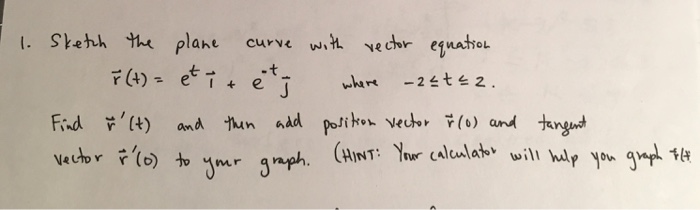 1. Sketch the plane curve with vector equation
r⃗(t) = e^t i⃗ + e^-t j⃗ where -2 ≤ t ≤ 2.
Find r⃗'(t) and then add position vector r⃗(0) and tangent
vector r⃗'(0) to your graph. (HINT: Your calculator will help you graph